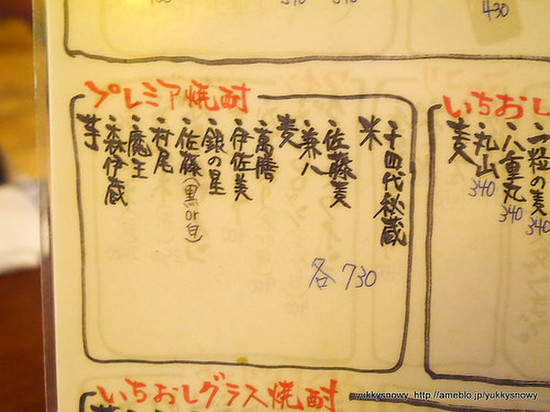 430
プレミア焼酎
芋
・森伊蔵
・魔王
・村尾
・佐藤(黒or白)
・銀の星
・伊佐美
・萬膳
麦
・兼八
・佐藤麦
米
・十四代秘蔵
各730
いちおし
・一粒の麦 340
・八重丸 340
・丸山 340
麦
いちおしグラス焼酎
yukkysnowy http://ameblo.jp/yukkysnowy